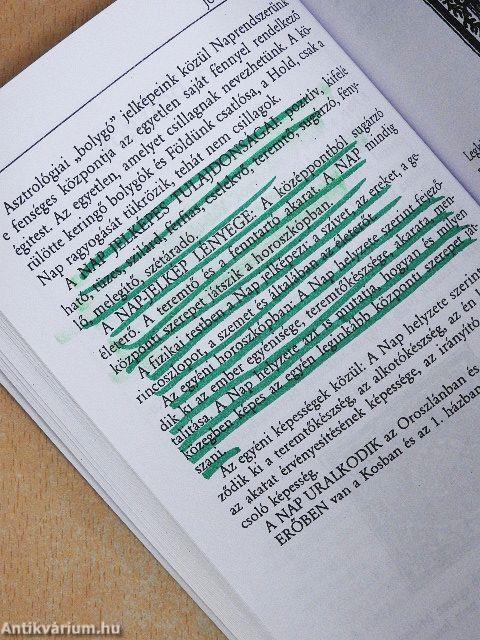 Asztrológiai „bolygó” jelképeink közül Naprendszerünk
e fenséges központja az egyetlen saját fénnyel rendelkező
égitest. Az egyetlen, amelyet csillagnak nevezhetünk. A kö-
rülötte keringő bolygók és Földünk csatlósa, a Hold, csak a
Nap ragyogását tükrözik, tehát nem csillagok.
A NAP JELKÉPES TULAJDONSÁGAI: pozitív, kifelé
ható, tüzes, szilárd, férfias, cselekvő, teremtő, sugárzó, fény-
lő, melegítő, szétáradó.
A NAP-JELKÉP LÉNYEGE: A középpontból sugárzó
életerő. A teremtő és a fenntartó akarat. A NAP mindig
központi szerepet játszik a horoszkópban.
A fizikai testben a Nap jelképezi: a szívet, az ereket, a ge-
rincoszlopot, a szemet és általában az életerőt.
Az egyéni horoszkópban: A Nap helyzete szerint fejező-
dik ki az ember egyénisége, teremtőkészsége, akarata, men-
talitása. A Nap helyzete azt is mutatja, hogyan és milyen
közegben képes az egyén leginkább központi szerepet ját-
szani.
Az egyéni képességek közül: A Nap helyzete szerint
ződik ki a teremtőkészség az alkotókészség, az én
az akarat érvényesítésének képessége, az irányító
csoló képesség.
A NAP URALKODIK az Oroszlánban és
ERŐBEN van a Kosban és az 1. házban
Antikvárium.hu